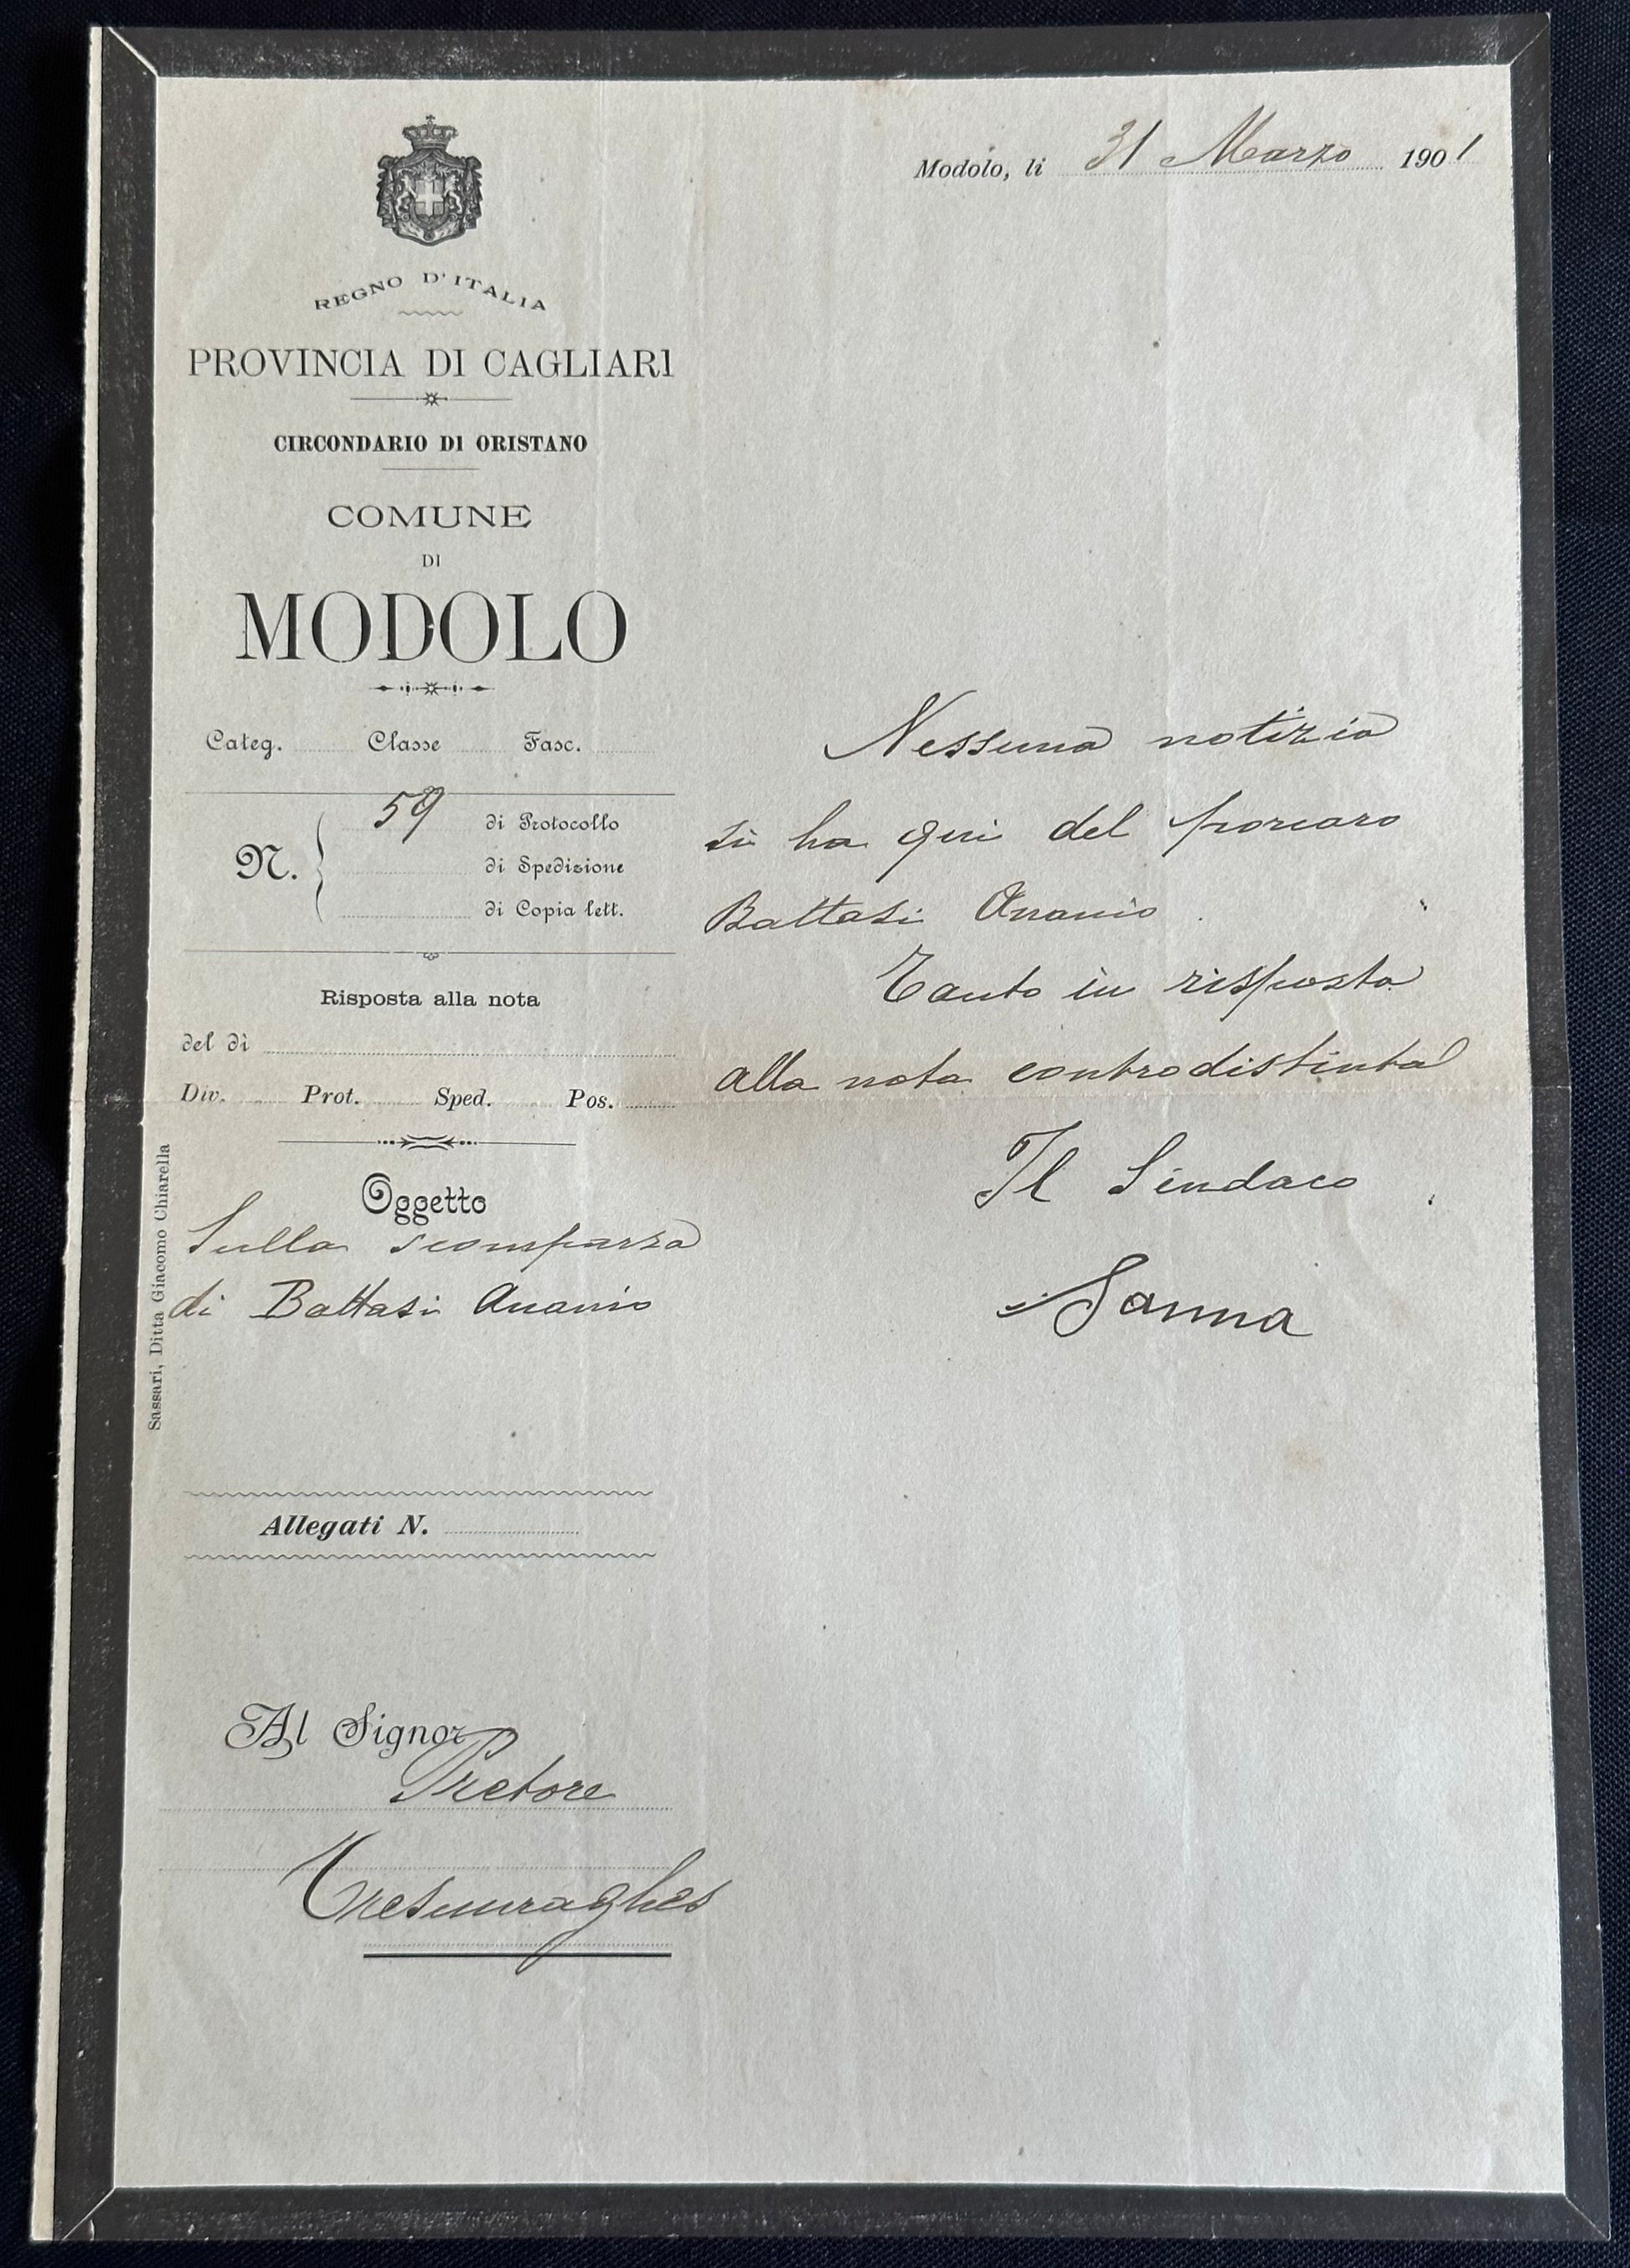 Modolo, li 31 Marzo 1901
REGNO D'ITALIA
PROVINCIA DI CAGLIARI
CIRCONDARIO DI ORISTANO
COMUNE
DI
MODOLO
Categ. Classe Fasc.
N. 59 di Protocollo
di Spedizione
di Copia lett.
Risposta alla nota
del dì
Div. Prot. Sped. Pos.
Oggetto
Sulla scomparsa
di Battasi Ananio
Sassari, Ditta Giacomo Chiarella
Allegati N.
Al Signor
Pretore
Tresnuraghes
Nessuna notizia
si ha qui del porcaro
Battasi Ananio.
Tanto in risposta
alla nota controdistinta
Il Sindaco
Sanna